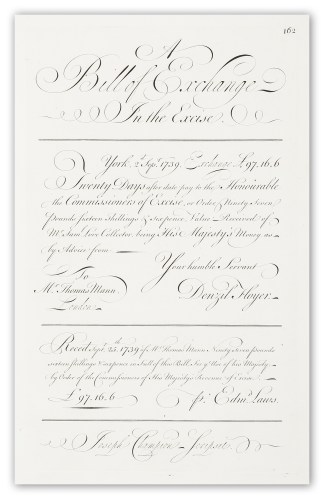 162
A
Bill of Exchange
In the Excise.
York, 2d. Septr. 1739. Exchange £97.16.6
Twenty Days after date pay to the Honourable
the Commissioners of Excise, or Order, Ninety Seven
Pounds sixteen Shillings & sixpence Value Received of
Mr. Love Collector, being His Majesty's Money as
by Advice from
Your humble Servant
To
Mr. Thomas Mann
London
Denzil Hoyer.
Reced. Septr. 25th. 1739 of Mr. Thomas Mann Ninety Seven pounds
sixteen shillings & sixpence in Full of this Bill, for ye Use of his Majesty
by Order of the Commissioners of His Majestys Revenue of
£97.16.6
pr. Edmd. Laws.
Joseph Champion Scripsit